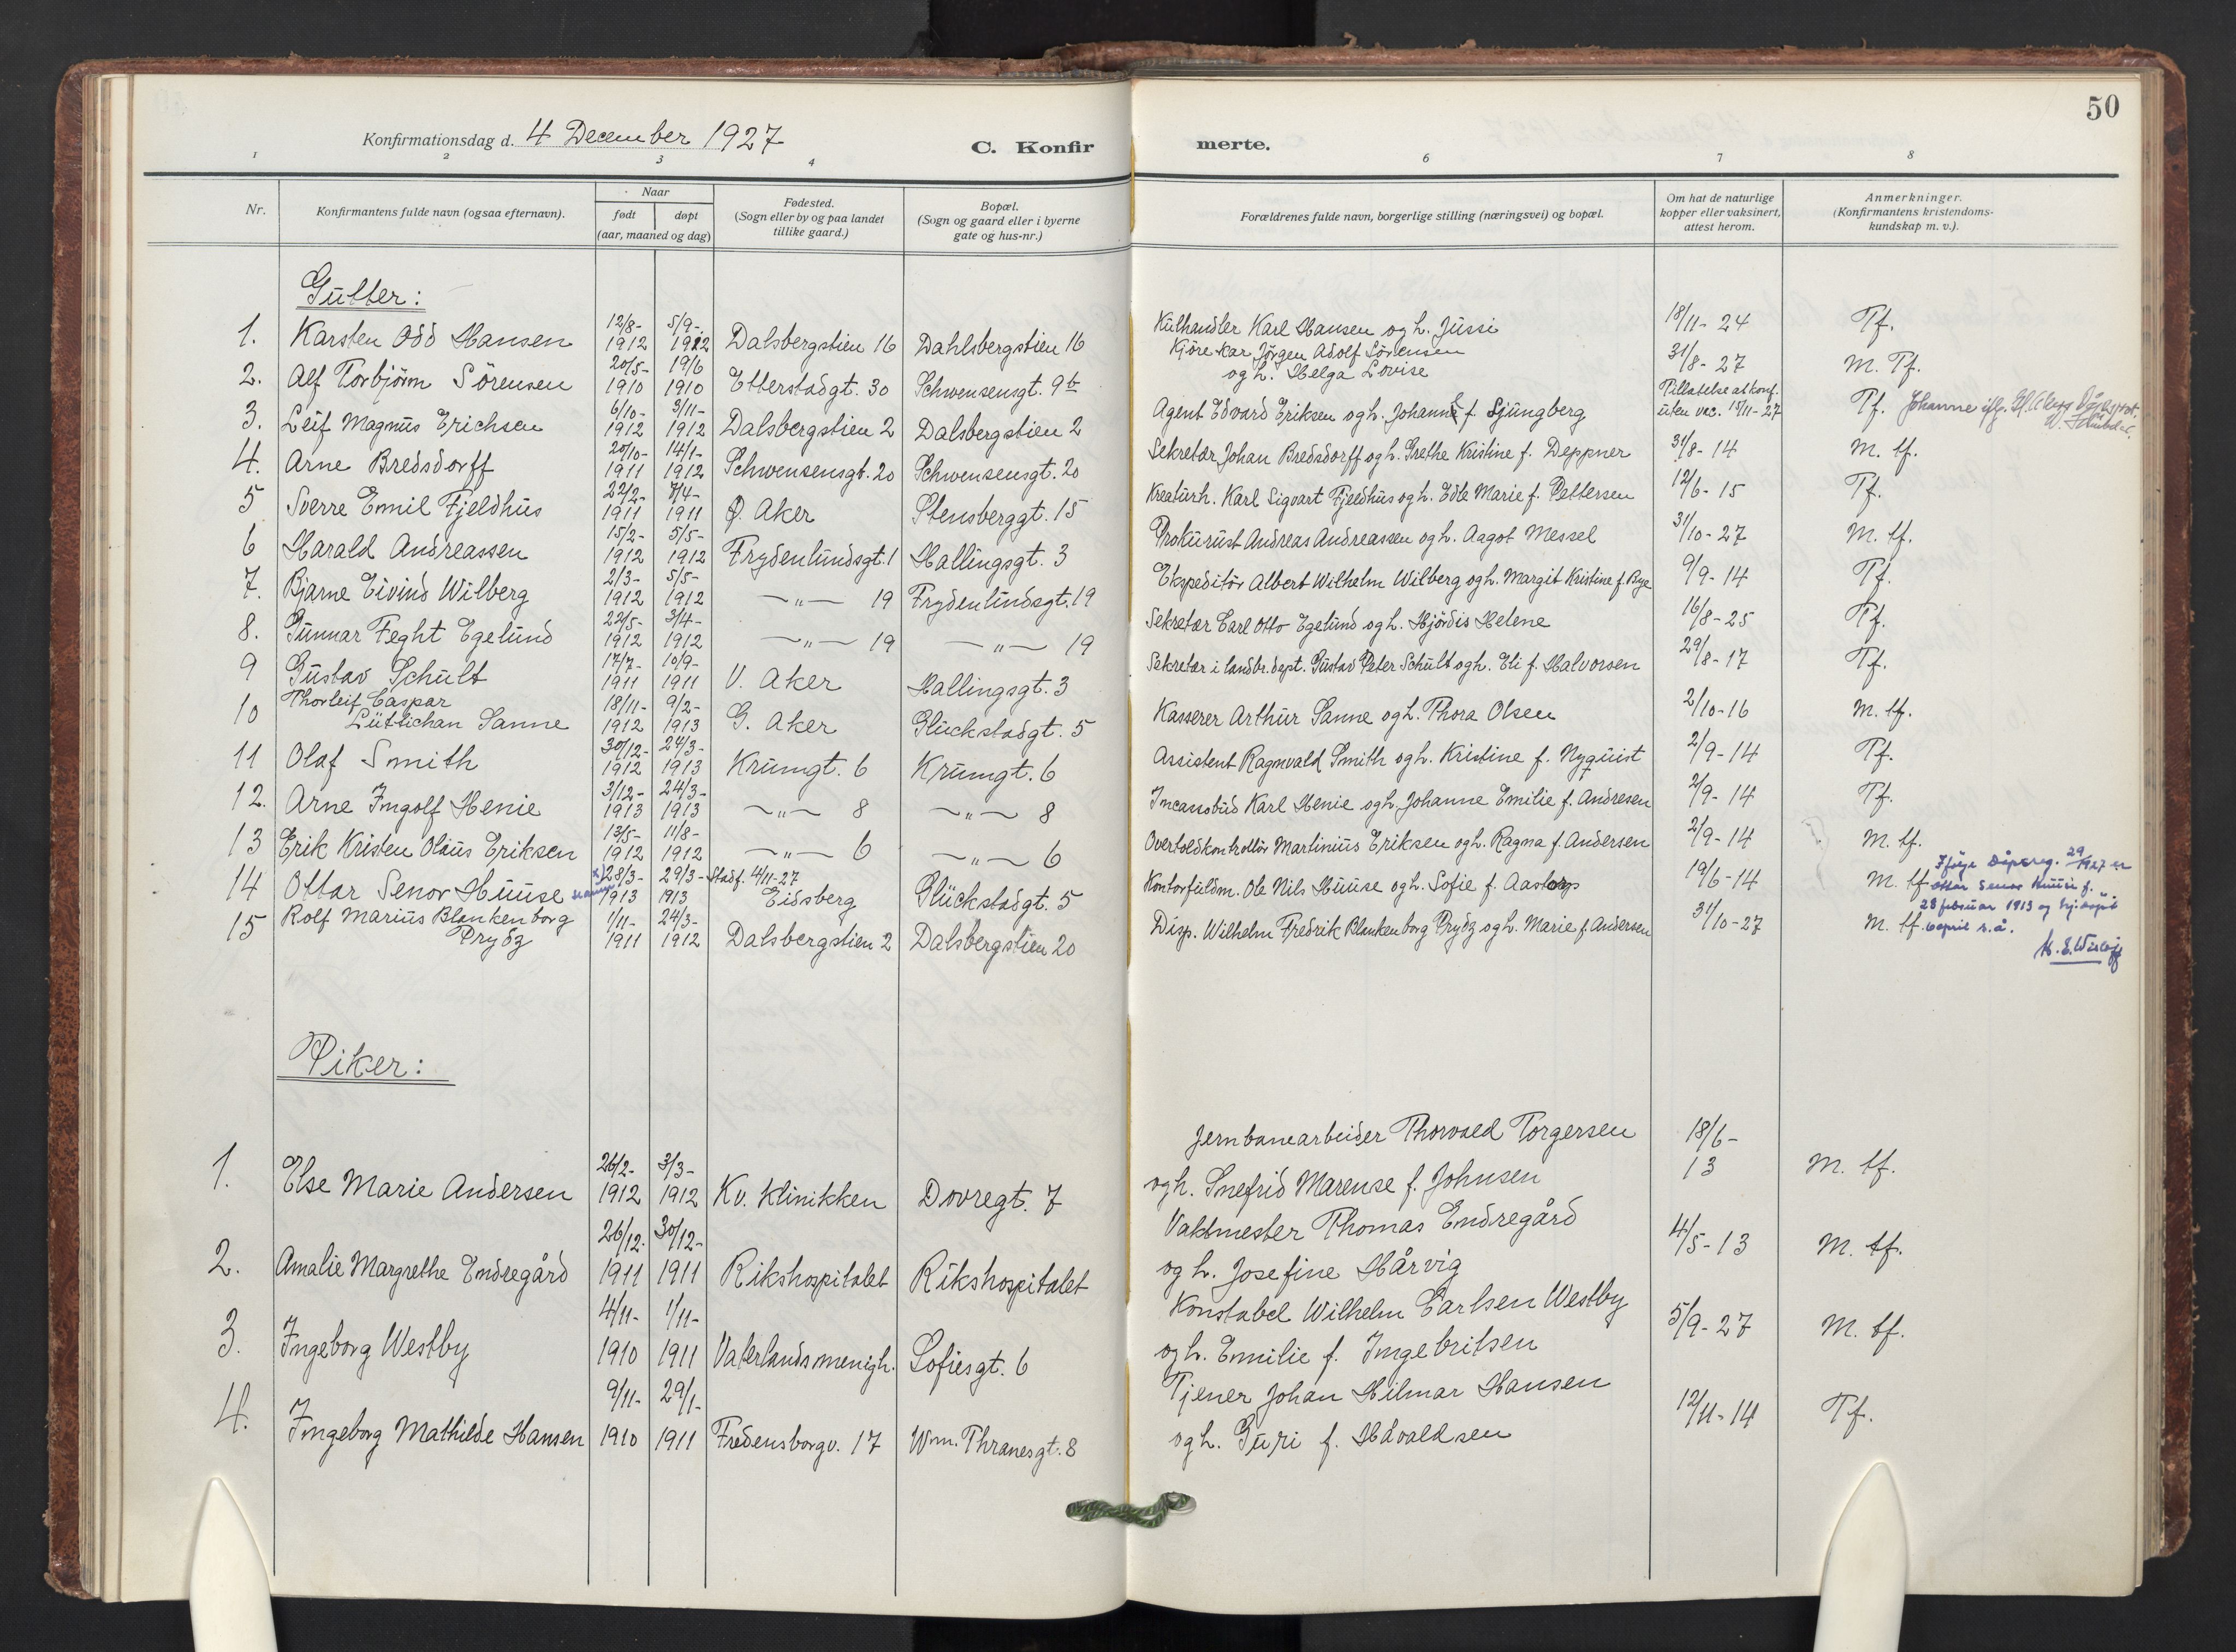 50
Konfirmationsdag d. 4 December 1927
C. Konfir merte.
1 2 3 4 6 7 8
Nr.
Konfirmantens fulde navn (ogsaa efternavn).
Naar
født døpt
(aar, maaned og dag)
Fødested.
(Sogn eller by og paa landet
tillike gaard.)
Bopæl.
(Sogn og gaard eller i byerne
gate og hus-nr.)
Forældrenes fulde navn, borgerlige stilling (næringsvei) og bopæl.
Om hat de naturlige
kopper eller vaksinert,
attest herom.
Anmerkninger.
(Konfirmantens kristendoms-
kundskap m. v.).
Gutter:
1. Karsten Odd Hansen 12/8- 1912 5/9- 1912 Dalsbergstien 16 Dahlsbergstien 16 Kulhandler Karl Hansen og h. Jussi 18/11- 24 Tf.
2. Alf Torbjörn Sörensen 20/5- 1910 19/6 1910 Etterstadgt. 30 Schwensensgt. 9b Kjörekar Jörgen Adolf Sörensen
og h. Helga Lovise 31/8- 27 M. Tf.
3. Leif Magnus Erichsen 6/10- 1912 3/11- 1912 Dalsbergstien 2 Dalsbergstien 2 Agent Edvard Eriksen og h. Johanne f. Ljungberg Tillatelse at konf.
uten vac. 15/11-27 Tf. Johanne iflg.
4. Arne Bredsdorff 20/10- 1911 14/1- 1912 Schwensensgt. 20 Schwensensgt. 20 Sekretær Johan Bredsdorff og h. Grethe Kristine f. Deppner 31/8- 14 M. tf.
5 Sverre Emil Fjeldhus 22/2- 1911 7/4- 1911 Ø. Aker Stensberggt. 15 Kreaturh. Karl Sigvart Fjeldhus og h. Edle Marie f. Pettersen 12/6- 15 Tf.
6 Harald Andreassen 15/2- 1912 5/5- 1912 Frydenlundsgt. 1 Hallingsgt. 3 Prokurist Andreas Andreassen og h. Aagot Messel 31/10- 27 M. tf.
7. Bjarne Eivind Wilberg 2/3- 1912 5/5- 1912 —"— 19 Frydenlundsgt. 19 Ekspeditör Albert Wilhelm Wilberg og h. Margit Kristine f. Bye 9/9- 14 Tf.
8. Gunnar Feght Egelund 22/5- 1912 3/4- 1912 —"— 19 —"— 19 Sekretær Carl Otto Egelund og h. Hjördis Helene 16/8- 25 Tf.
9 Gustav Schult 17/7- 1911 10/9- 1911 V. Aker Hallingsgt. 3 Sekretær i landbr.dept. Gustav Peter Schult og h. Eli f. Halvorsen 29/8- 17 Tf.
10 Thorleif Caspar
Lütlichan Sanne 18/11- 1912 9/2- 1913 G. Aker Glückstadgt. 5 Kasserer Arthur Sanne og h. Thora Olsen 2/10-16 M. tf.
11 Olaf Smith 30/12- 1912 24/3- 1913 Krumgt. 6 Krumgt. 6 Assistent Ragnvald Smith og h. Kristine f. Nyquist 2/9- 14 Tf.
12. Arne Ingolf Henie 3/12- 1913 24/3- 1913 —"— 8 —"— 8 Incassobud Karl Henie og h. Johanne Emilie f. Andresen 2/9- 14 Tf.
13 Erik Kristen Olaus Eriksen 13/5- 1912 11/8- 1912 —"— 6 —"— 6 Overtoldkontrollör Martinius Eriksen og h. Ragna f. Andersen 2/9- 14 M. tf.
14 Ottar Senor Huuse x) 28/3- 1913 29/3- 1913 Stadf. 4/11-27
Eidsberg Glückstadgt. 5 Kontorfuldm. Ole Nils Huuse og h. Sofie f. Aastorp 19/6-14 M. tf. Ifölge Dåpsreg. 29/ 1927 er
Ottar Senor Huuse f.
28 februar 1913 og
6 april s.å.
15 Rolf Marius Blankenborg
Prydz 1/11- 1911 24/3- 1912 Dalsbergstien 2 Dalsbergstien 20 Disp. Wilhelm Fredrik Blankenborg Prydz og h. Marie f. Andersen 31/10-27 M. tf.
Piker:
1. Else Marie Andersen 26/2- 1912 3/3- 1912 Kv. Klinikken Dovregt. 7 Jernbanearbeider Thorvald Torgersen
og h. Snefrid Marense f. Johnsen 18/6- 13 M. tf.
2. Amalie Margrethe Endregård 26/12. 1911 30/12- 1911 Rikshospitalet Rikshospitalet Vaktmester Thomas Endregård
og h. Josefine Hårvig 4/5- 13 M. tf.
3. Ingeborg Westby 4/11- 1910 1/11- 1911 Vaterlands menigh. Sofiesgt. 6 Konstabel Wilhelm Carlsen Westby
og h. Emilie f. Ingebritsen 5/9- 27 M. tf.
4. Ingeborg Mathilde Hansen 9/11- 1910 29/1- 1911 Fredensborgv. 17 Wm. Thranesgt. 8 Tjener Johan Hilmar Hansen
og h. Guri f. Håvaldsen 12/11- 14 Tf.